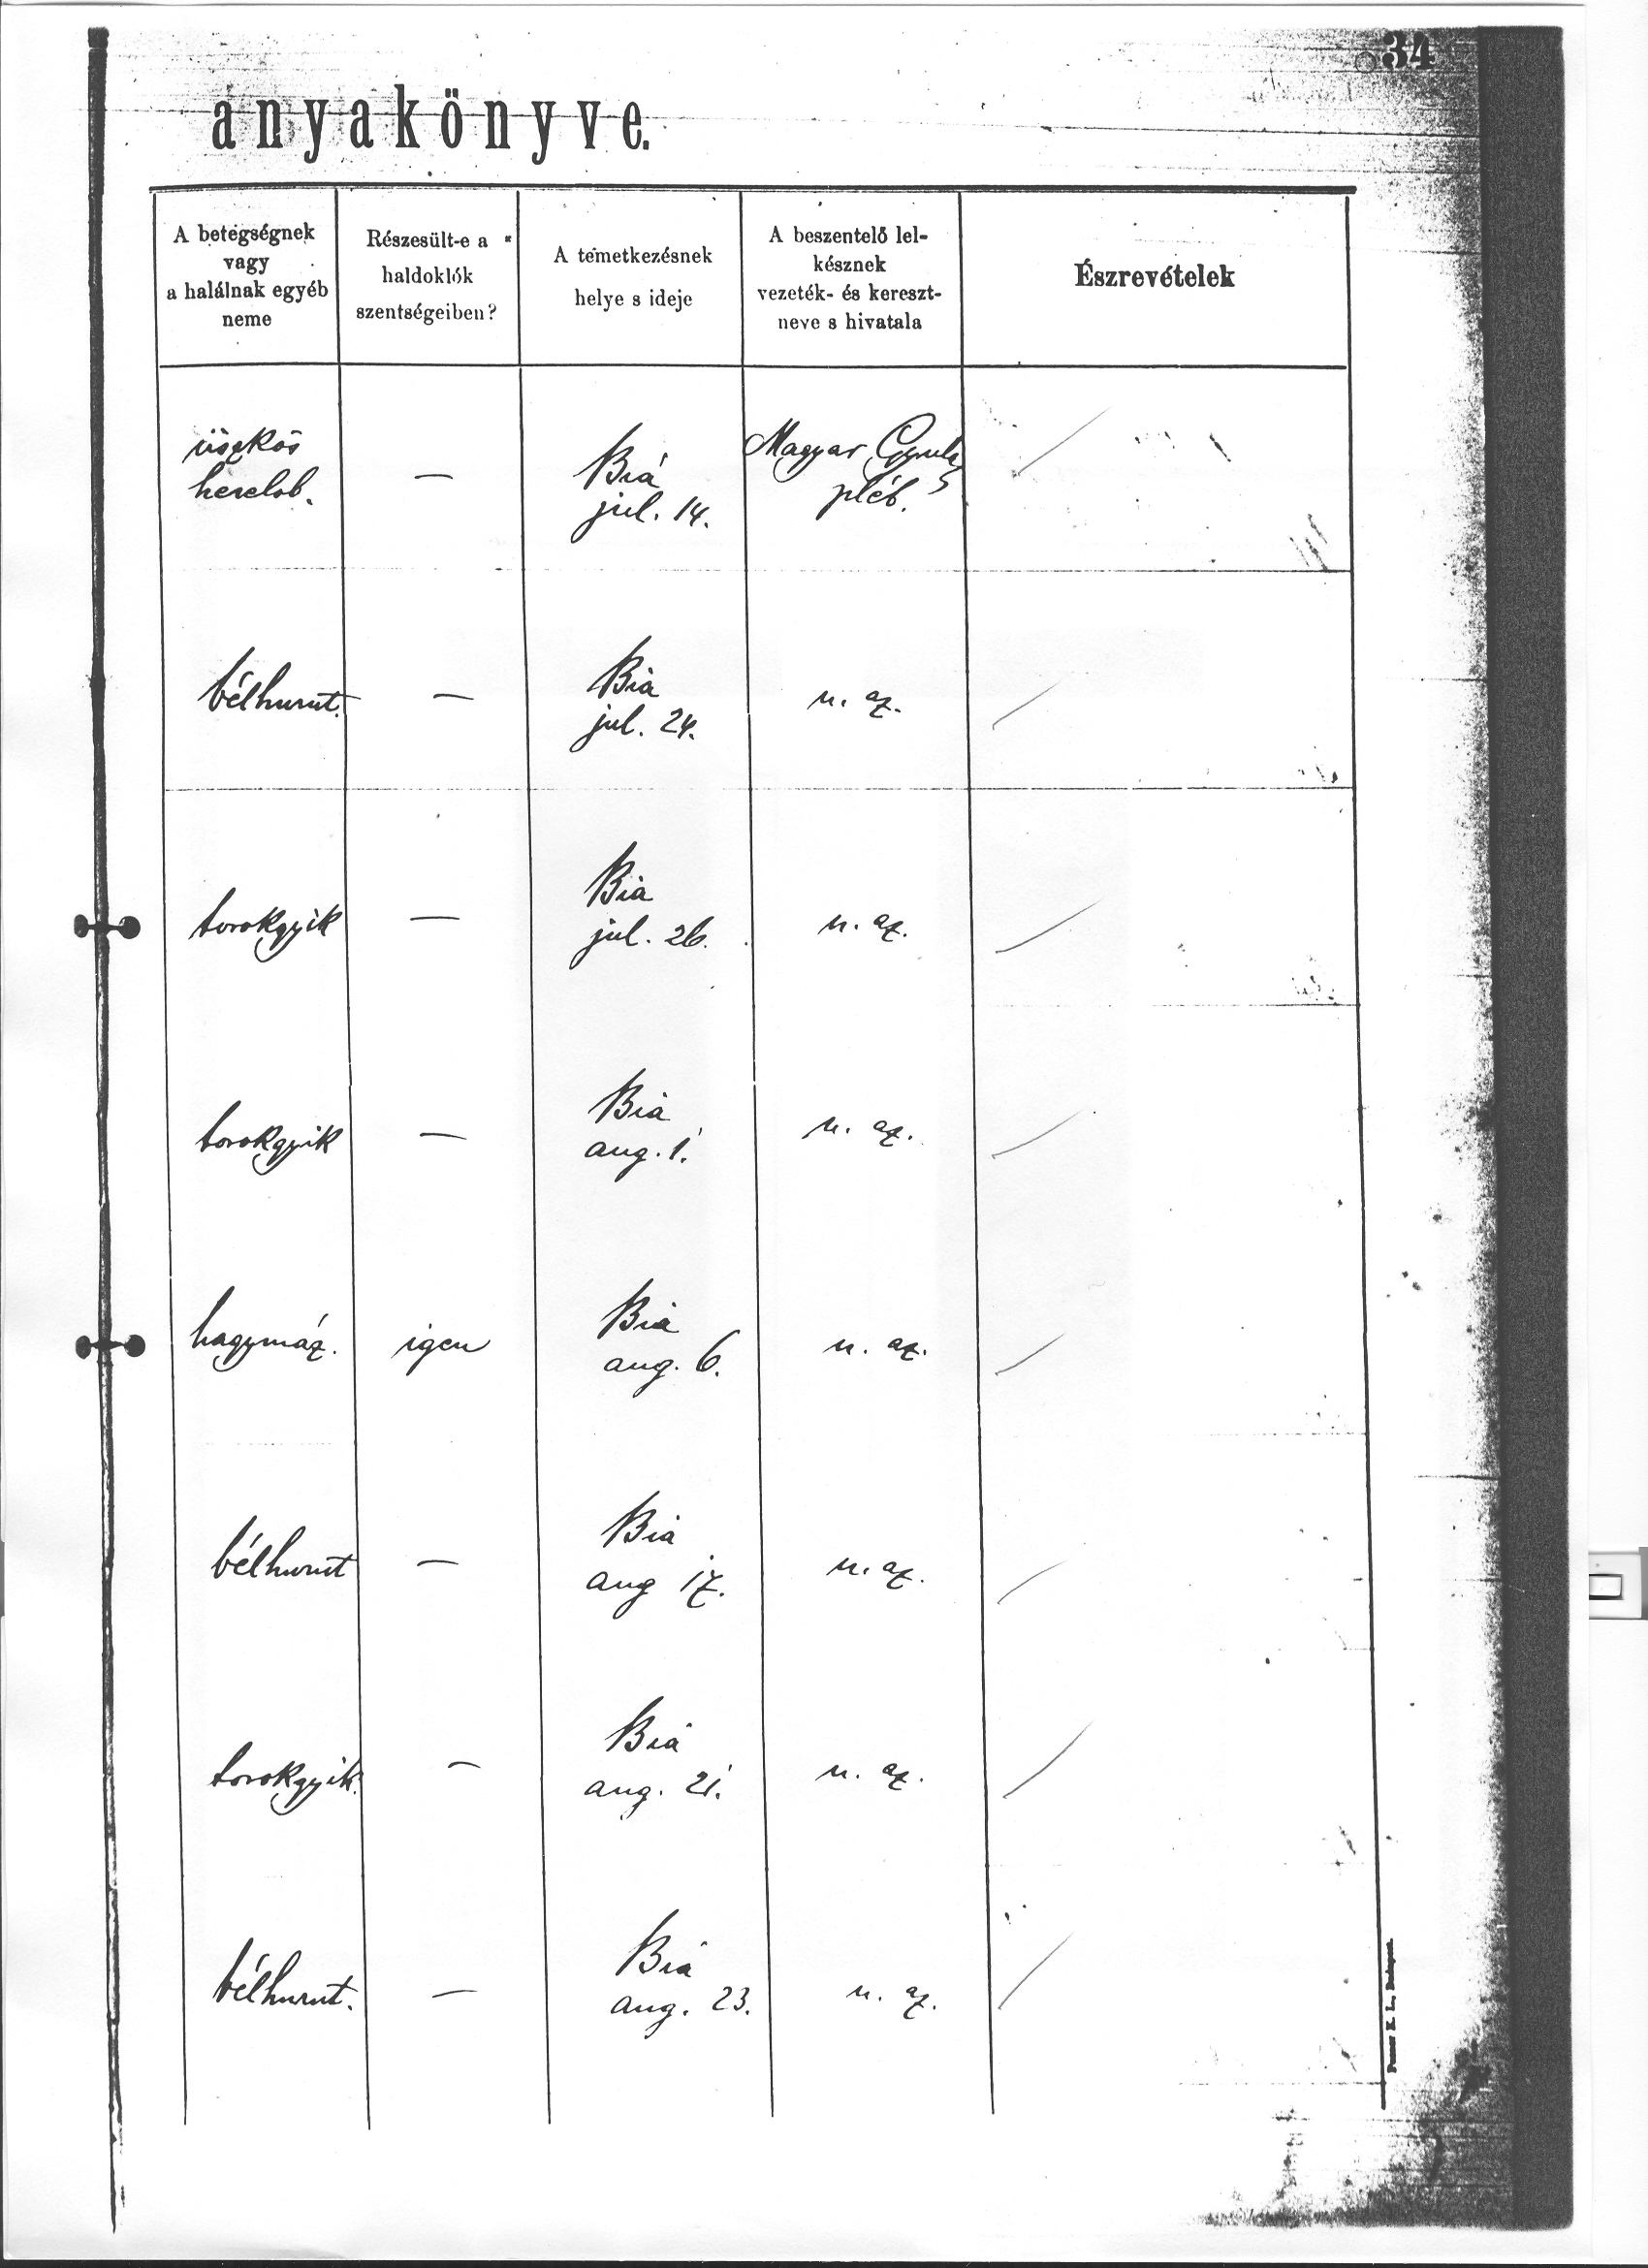 34
anyakönyve.
A betegségnek
vagy
a halálnak egyéb
neme
Részesült-e a
haldoklók
szentségeiben?
A temetkezésnek
helye s ideje
A beszentelő lel-
késznek
vezeték- és kereszt-
neve s hivatala
Észrevételek
üszkös
herelob.
—
Biá
jul. 14.
Magyar Gyula
pléb.
bélhurut.
—
Bia
jul. 24.
u. az.
torokgyik
—
Bia
jul. 26.
u. az.
torokgyik
—
Bia
aug. 1.
u. az.
hagymáz.
igen
Bia
aug. 6.
u. az.
bélhurut
—
Bia
aug 17.
u. az.
torokgyik.
—
Biá
aug. 21.
u. az.
bélhurut.
—
Bia
aug. 23.
u. az.
K. L., Budapest.